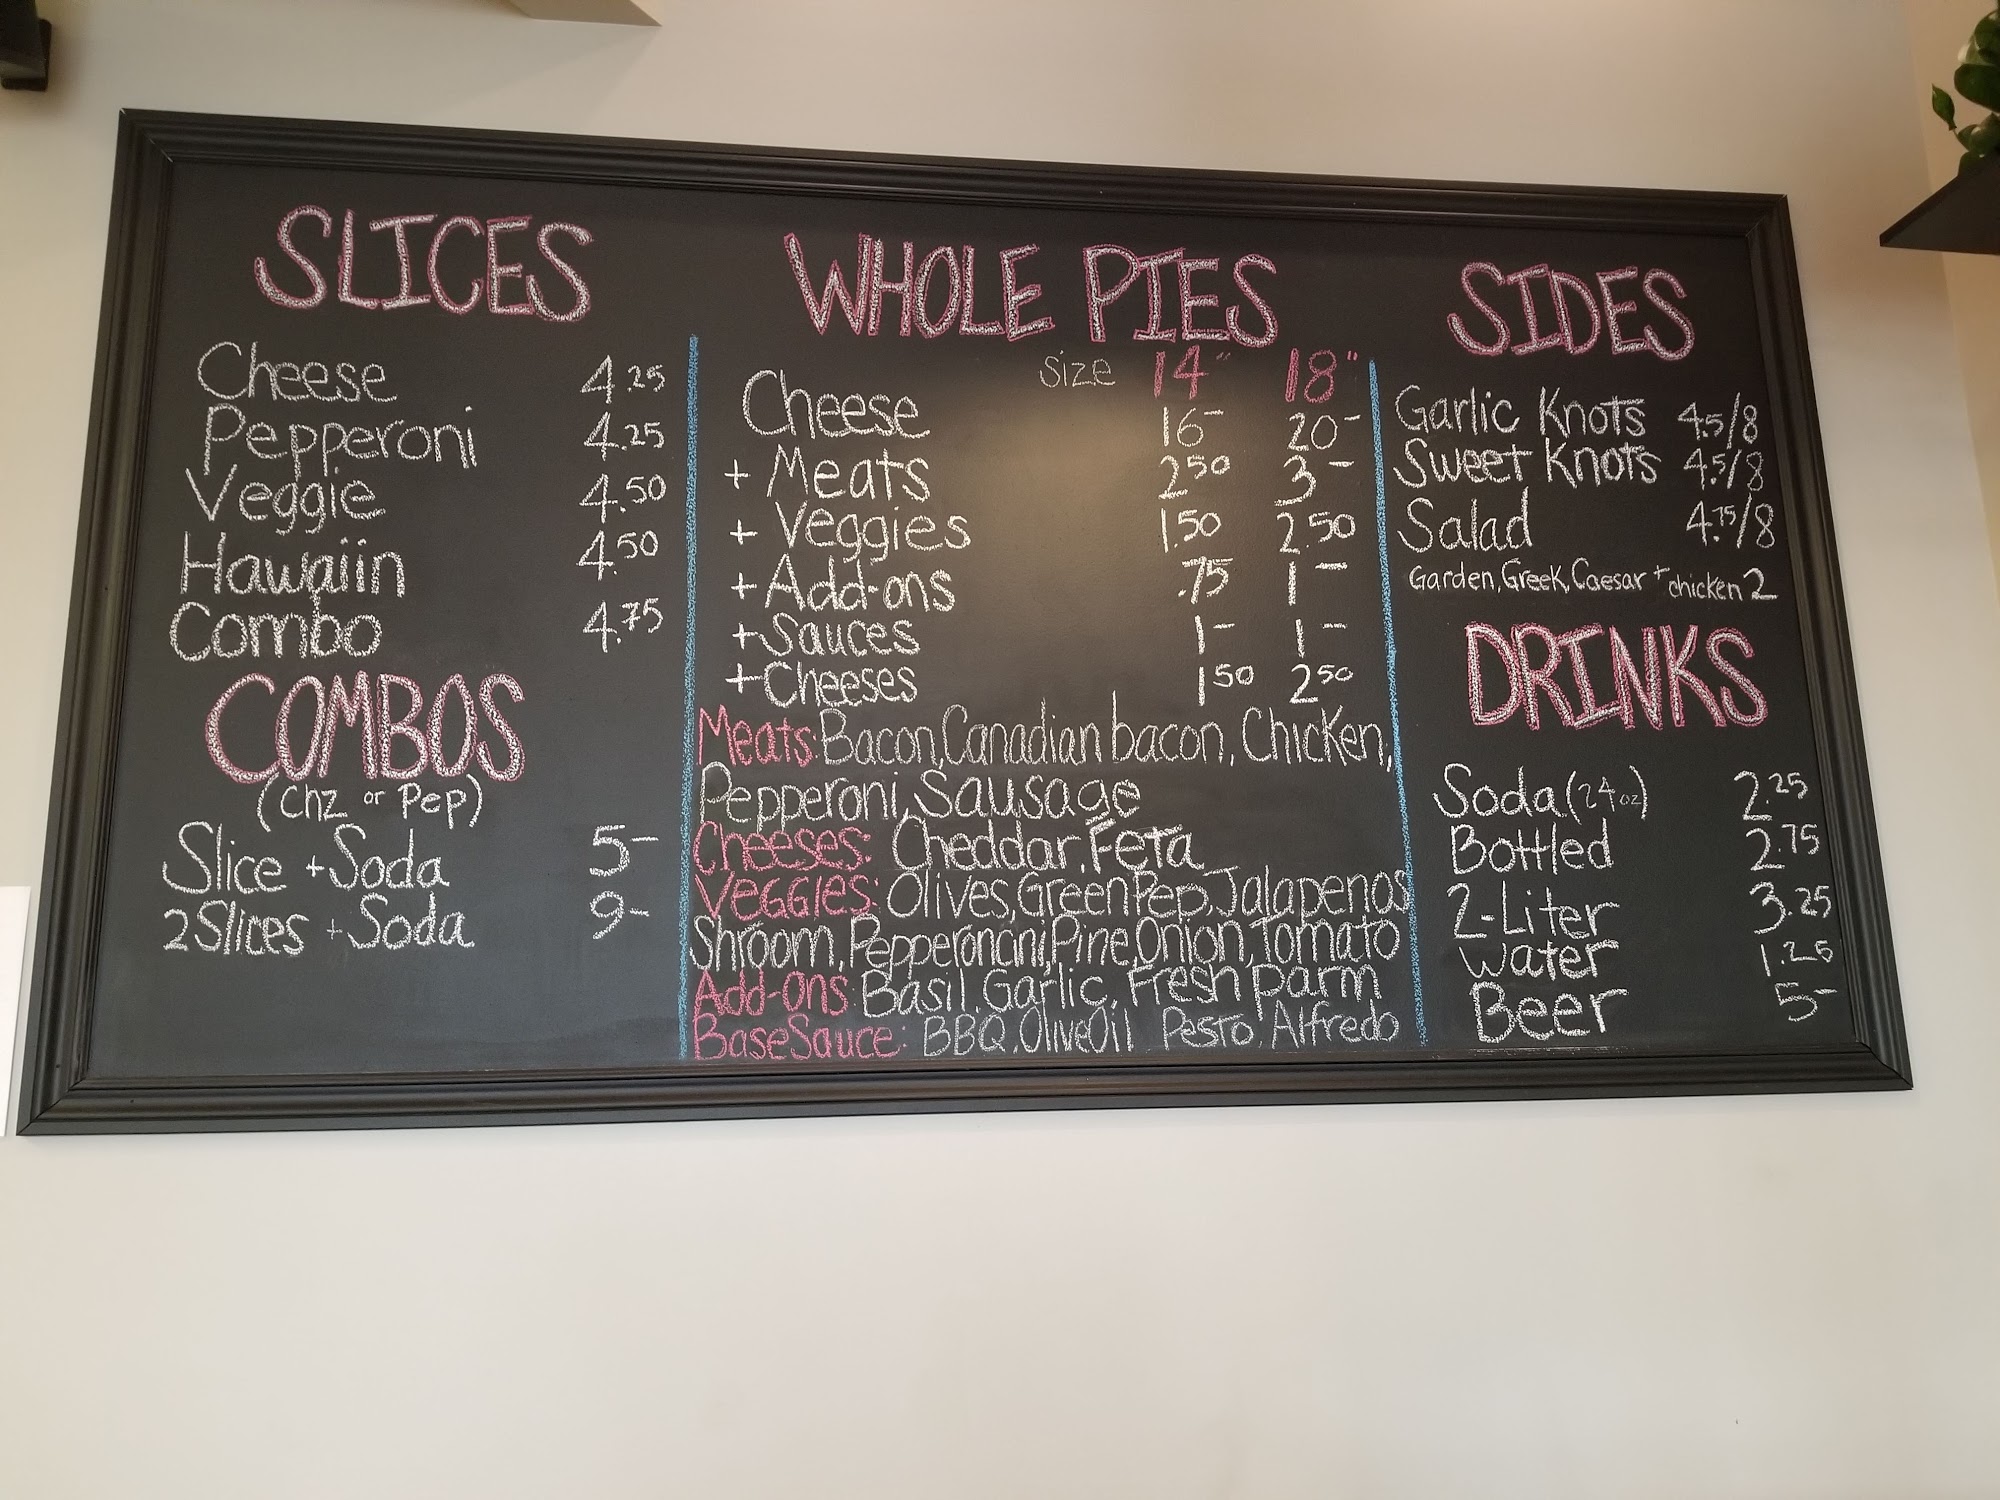 SLICES
Cheese 4.25
Pepperoni 4.25
Veggie 4.50
Hawaiin 4.50
Combo 4.75
COMBOS
(Chz or Pep)
Slice + Soda 5-
2 Slices + Soda 9-
WHOLE PIES
Size 14" 18"
Cheese 16- 20-
+ Meats 2 50 3-
+ Veggies 1.50 2.50
+ Add-ons .75 1-
+ Sauces 1- 1-
+ Cheeses 1 50 2 50
Meats: Bacon, Canadian bacon, Chicken,
Pepperoni, Sausage
Cheeses: Cheddar, Feta
Veggies: Olives, Green Pep, Jalapenos
Shroom, Pepperoncini, Pine, Onion, Tomato
Add-ons: Basil, Garlic, Fresh parm
Base Sauce: BBQ, Olive Oil Pesto, Alfredo
SIDES
Garlic Knots 4.5/8
Sweet Knots 4.5/8
Salad 4.75/8
Garden, Greek, Caesar + chicken 2
DRINKS
Soda (24 oz) 2.25
Bottled 2.75
2-Liter 3.25
Water 1.25
Beer 5-